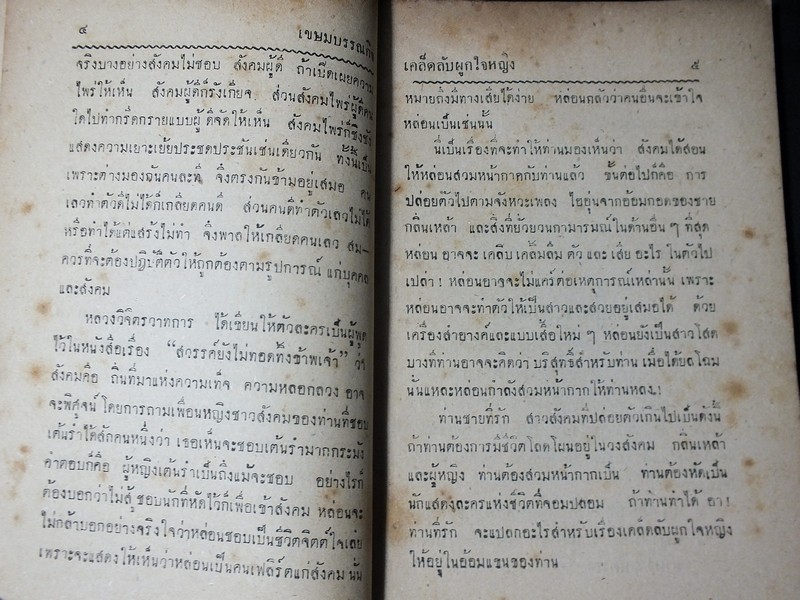 ๔ เขษมบรรณกิจ
จริงบางอย่างสังคมไม่ชอบ สังคมผู้ดี ถ้าเปิดเผยความ
ไพร่ให้เห็น สังคมผู้ดีก็รังเกียจ ส่วนสังคมไพร่ผู้ดีคน
ใดไปทำกรีดกรายแบบผู้ดีจัดให้เห็น สังคมไพร่ก็ชิงชัง
แสดงความเยาะเย้ยประชดประชันเช่นเดียวกัน ทั้งนี้เป็น
เพราะต่างมองฉันคนละที่ จึงตรงกันข้ามอยู่เสมอ คน
เลวทำตัวดีไม่ได้ก็เกลียดคนดี ส่วนคนดีทำตัวเลวไม่ได้
หรือทำได้แต่แสร้งไม่ทำ จึงพาลให้เกลียดคนเลว สม–
ควรที่จะต้องปฏิบัติตัวให้ถูกต้องตามรูปการณ์ แก่บุคคล
และสังคม
หลวงวิจิตรวาทการ ได้เขียนให้ตัวละครเป็นผู้พูด
ไว้ในหนังสือเรื่อง “สวรรค์ยังไม่ทอดทิ้งข้าพเจ้า” ว่า
สังคมคือ ถิ่นที่มาแห่งความเท็จ ความหลอกลวง อาจ
จะพิศูจน์ โดยการถามเพื่อนหญิงชาวสังคมของท่านที่ชอบ
เต้นรำได้สักคนหนึ่งว่า เธอเห็นจะชอบเต้นรำมากกระมัง
คำตอบก็คือ ผู้หญิงเต้นรำเป็นถึงแม้จะชอบ อย่างไรก็
ต้องบอกว่าไม่สู้ ชอบนักที่หัดไว้ก็เพื่อเข้าสังคม หล่อนจะ
ไม่กล้าบอกอย่างจริงใจว่าหล่อนชอบเป็นชีวิตจิตต์ใจเลย
เพราะจะแสดงให้เห็นว่าหล่อนเป็นคนเฟลิร์ตแก่สังคม นั่น
เคล็ดลับผูกใจหญิง ๕
หมายถึงมีทางเสียได้ง่าย หล่อนกลัวว่าคนอื่นจะเข้าใจ
หล่อนเป็นเช่นนั้น
นี่เป็นเรื่องที่จะทำให้ท่านมองเห็นว่า สังคมได้สอน
ให้หล่อนสวมหน้ากากกับท่านแล้ว ขั้นต่อไปก็คือ การ
ปล่อยตัวไปตามจังหวะเพลง ไออุ่นจากอ้อมกอดของชาย
กลิ่นเหล้า และสิ่งที่ยั่วยวนกามารมณ์ในด้านอื่น ๆ ที่สุด
หล่อน อาจจะ เคลิบ เคลิ้มลืม ตัว และ เสีย อะไร ในตัวไป
เปล่า ! หล่อนอาจจะไม่แคร์ต่อเหตุการณ์เหล่านั้น เพราะ
หล่อนอาจจะทำตัวให้เป็นสาวและสวยอยู่เสมอได้ ด้วย
เครื่องสำอางค์และแบบเสื้อใหม่ ๆ หล่อนยังเป็นสาวโสด
บางทีท่านอาจจะคิดว่า บริสุทธิ์สำหรับท่าน เมื่อได้ยลโฉม
นั่นแหละหล่อนกำลังสวมหน้ากากให้ท่านหลง !
ท่านชายที่รัก สาวสังคมที่ปล่อยตัวเกินไปเป็นดั่งนี้
ถ้าท่านต้องการมีชีวิตโลดโผนอยู่ในวงสังคม กลิ่นเหล้า
และผู้หญิง ท่านต้องสวมหน้ากากเป็น ท่านต้องหัดเป็น
นักแสดงละครแห่งชีวิตที่จอมปลอม ถ้าท่านทำได้ อา !
ท่านที่รัก จะแปลกอะไรสำหรับเรื่องเคล็ดลับผูกใจหญิง
ให้อยู่ในอ้อมแขนของท่าน